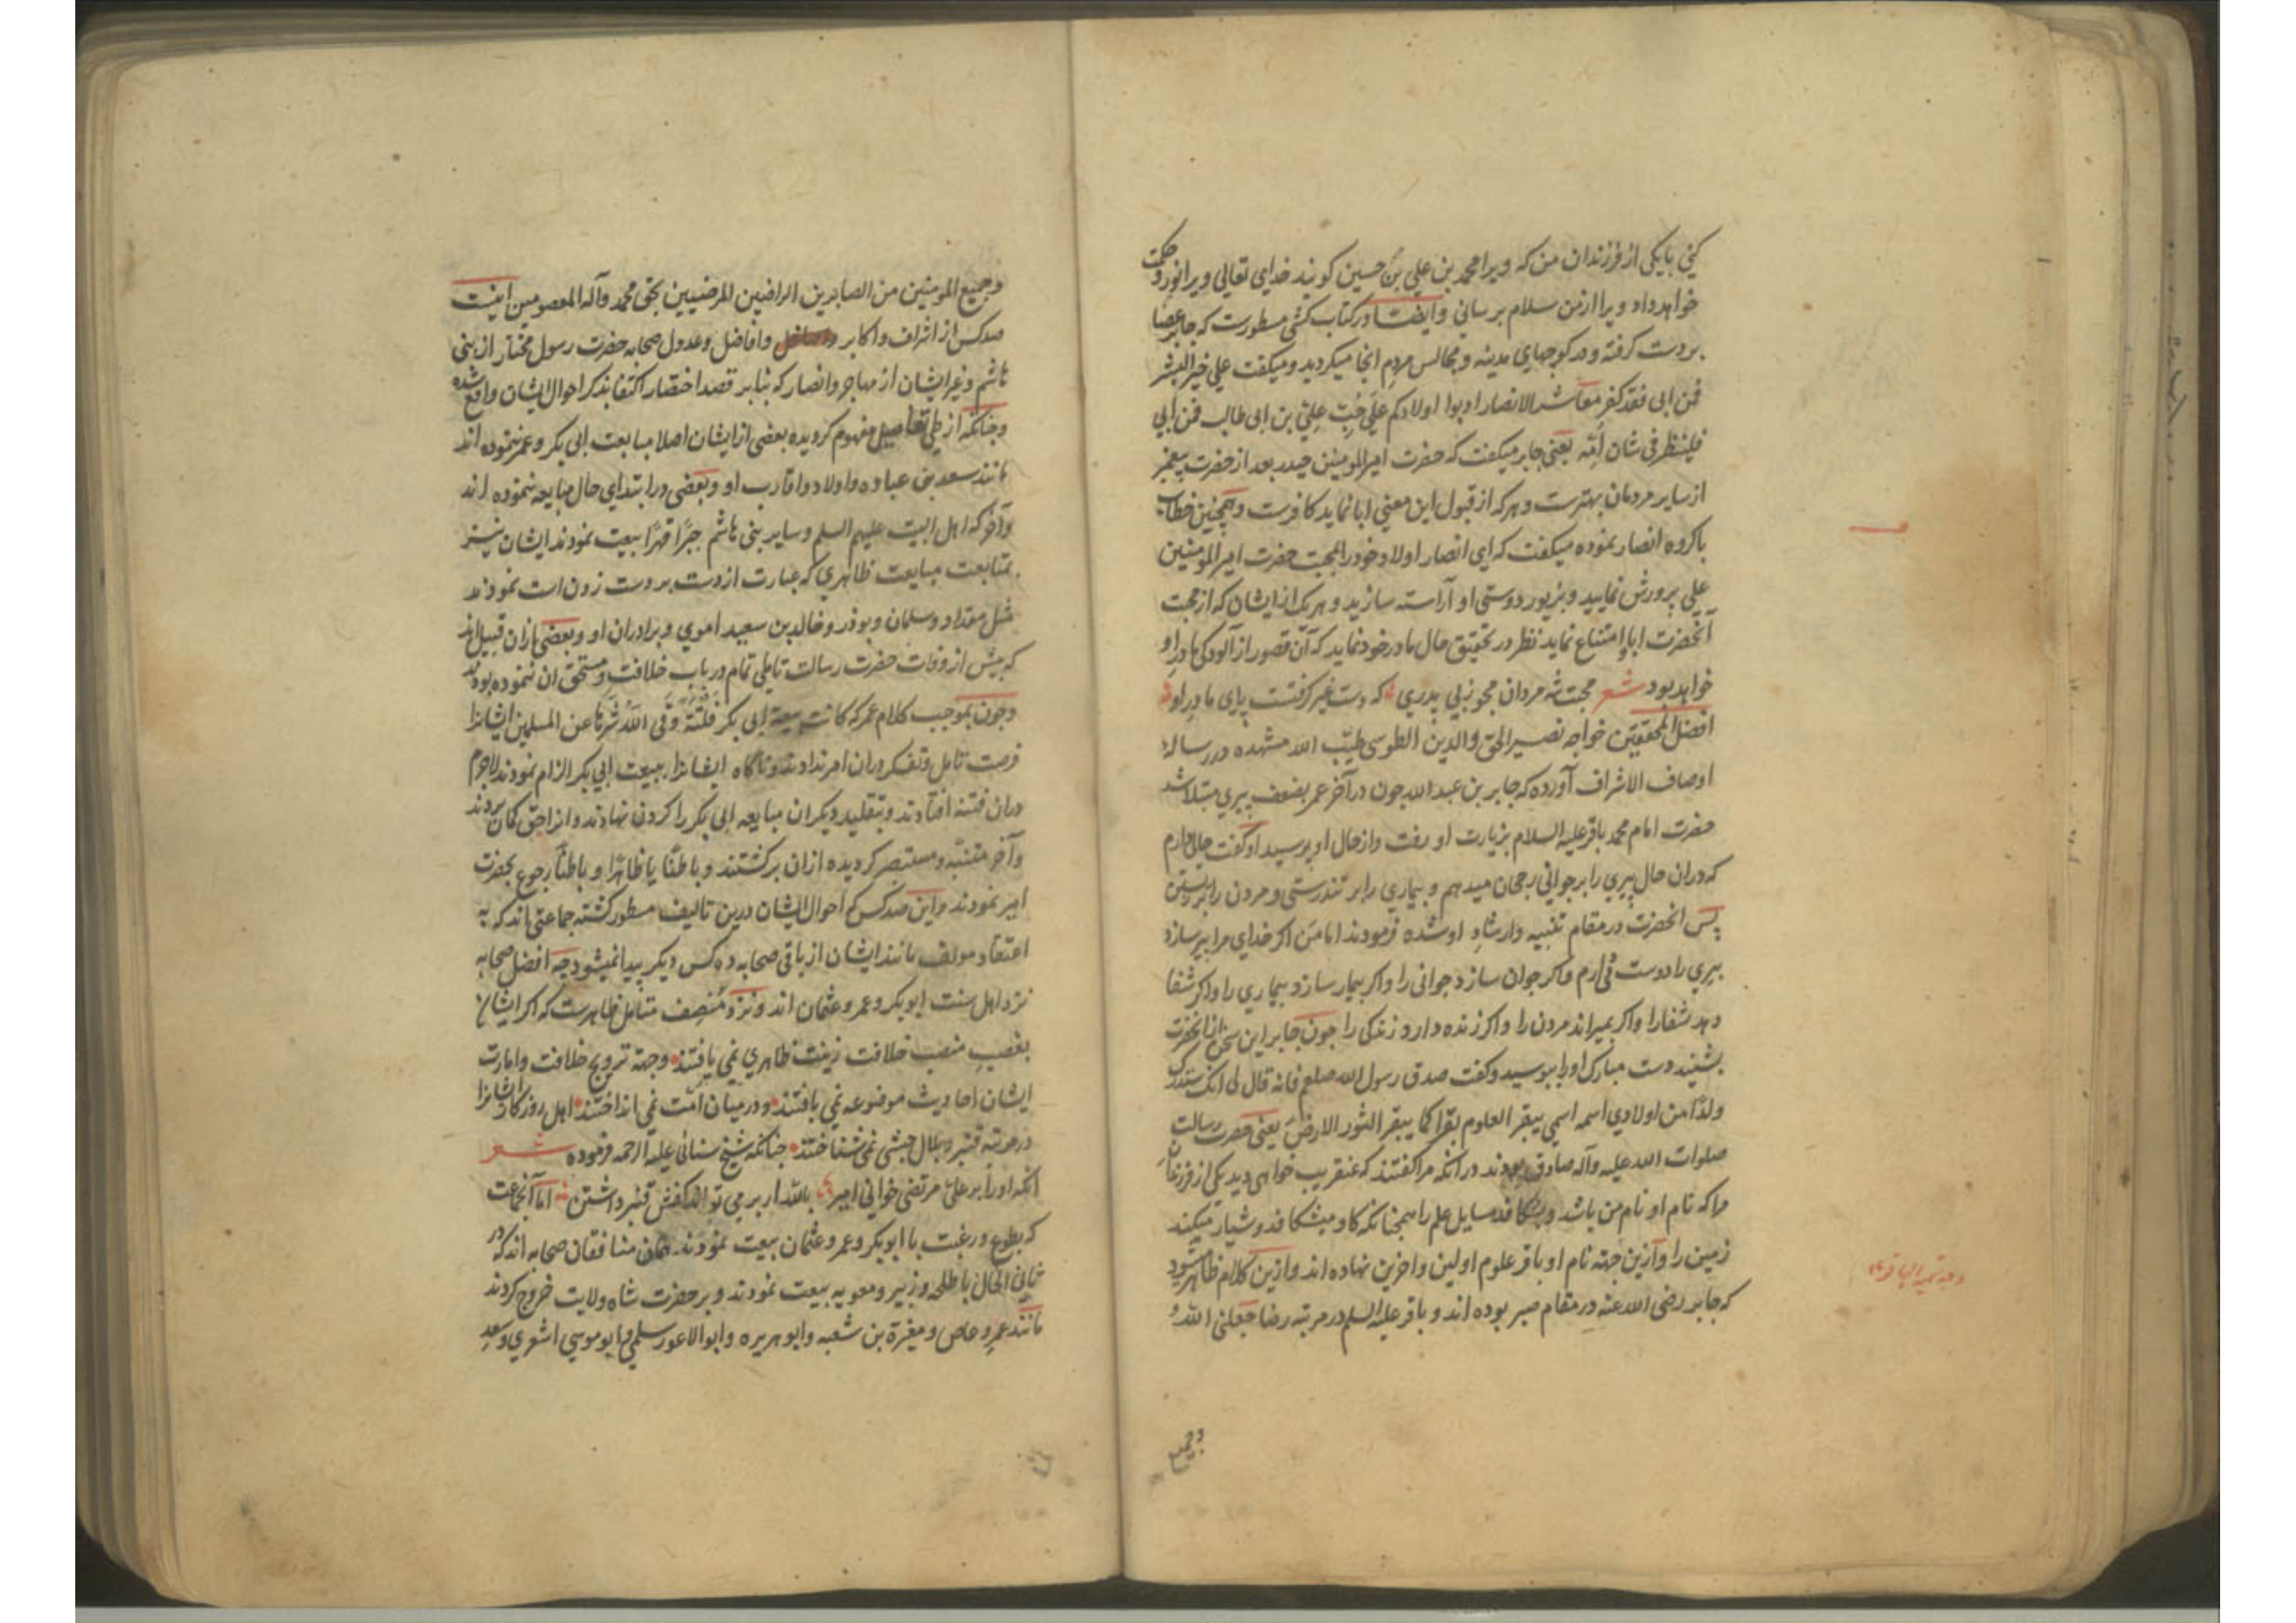 کنی با یکی از فرزندان من که ویرا محمد بن علی بن حسین کویند خدای تعالی ویرا نور و حکمت
خواهد داد ویرا از من سلام برسانی وایضا در کتاب کشی مسطورست که جابر عصا
بردست کرفته ودر کوچهای مدینه ومجالس مردم انجا میکردید ومیکفت علی خیر البشر
فمن ابی فقد کفر معاشر الانصار ادبوا اولادکم علی حب علی بن ابی طالب فمن ابی
فلینظر فی شان امه یعنی جابر میکفت که حضرت امیر المومنین حیدر بعد از حضرت پیغمبر
از سایر مردمان بهترست وهرکه از قبول این معنی ابا نماید کافرست وهمچنین خطاب
باکروه انصار نموده میکفت که ای انصار اولاد خود را بمحبت حضرت امیر المومنین
علی پرورش نمایید وبزیور دوستی او آراسته سازید وهریک از ایشان که از محبت
آنحضرت ابا وامتناع نماید نظر در تحقیق حال مادر خود نماید که آن قصور از آلودکی مادر او
خواهد بود شعر محبت شه مردان مجو زبی پدری که دست غیر کرفتست پای مادر او
افضل المحققین خواجه نصیر الحق والدین الطوسی طیب الله مشهده در رساله
اوصاف الاشراف آورده که جابر بن عبد الله چون در آخر عمر بضعف پیری مبتلا شد
حضرت امام محمد باقر علیه السلام بزیارت او رفت واز حال او پرسید او کفت حالی دارم
که دران حال پیری را بر جوانی رجحان میدهم وبیماری را بر تندرستی ومردن را بر زیستن
پس انحضرت در مقام تنبیه وارشاد او شده فرمودند اما من اکر خدای مرا پیر سازد
پیری را دوست میدارم واکر جوان سازد جوانی را واکر بیمار سازد بیماری را واکر شفا
دهد شفا را واکر بمیراند مردن را واکر زنده دارد زندکی را چون جابر این سخن از انحضرت
بشنید دست مبارک او را ببوسید وکفت صدق رسول الله صلعم فانه قال لی انک ستدرک
ولدا من اولادی اسمه اسمی یبقر العلوم بقرا کما یبقر الثور الارض یعنی حضرت رسالت
صلوات الله علیه وآله صادق بودند در انکه مرا کفتند که عنقریب خواهی دید یکی از فرزندان
مرا که نام او نام من باشد وبشکافد مسایل علم را همچنانکه کاو میشکافد وشیار میکند
زمین را وازین جهة نام او باقر علوم اولین واخرین نهاده اند وازین کلام ظاهر میشود
که جابر رضی الله عنه در مقام صبر بوده اند وباقر علیه السلم در مرتبه رضا جعلنی الله و
وجمیع
وجمیع المومنین من الصابرین الراضین المرضیین بحق محمد وآله المعصومین اینست
صدکس از اشراف واکابر وافاضل وعدول صحابه حضرت رسول مختار از بنی
هاشم وغیر ایشان از مهاجر وانصار که بنابر قصد اختصار اکتفا بذکر احوال ایشان واقع شده
وچنانکه از طی تفاصیل مفهوم کردیده بعضی از ایشان اصلا مبایعت ابی بکر وعمر ننموده اند
مانند سعد بن عباده واولاد واقارب او وبعضی در ابتدای حال مبایعه ننموده اند
وآخر که اهل البیت علیهم السلم وسایر بنی هاشم جبرا قهرا بیعت نمودند ایشان نیز
بمتابعت مبایعت ظاهری که عبارت از دست بر دست زدن است نمودند
مثل مقداد وسلمان وبوذر وخالد بن سعید اموی وبرادران او وبعضی ازان قبیل اند
که پیش از وفات حضرت رسالت تاملی تمام در باب خلافت ومستحق ان ننموده بودند
وچون بموجب کلام عمر که کانت بیعة ابی بکر فلتة وقی الله شرها عن المسلمین ایشانرا
فرصت تامل وتفکر دران امر ندادند وناکاه ایشانرا ببیعت ابی بکر الزام نمودند لاجرم
دران فتنه افتادند وبتقلید دیکران مبایعه ابی بکر را کردن نهادند وانرا حق کمان بردند
وآخر متنبه ومستبصر کردیده ازان برکشتند وباطنا یا ظاهرا وباطنا رجوع بحضرت
امیر نمودند واین صدکس که احوال ایشان درین تالیف مسطور کشته جماعتی اند که به
اعتقاد مولف مانند ایشان از باقی صحابه ده کس دیکر پیدا نمیشود چه افضل صحابه
نزد اهل سنت ابوبکر وعمر وعثمان اند ونزد منصف متامل ظاهرست که اکر ایشان
بغصب منصب خلافت زینت ظاهری نمی یافتند وجهة ترویج خلافت وامارت
ایشان احادیث موضوعه نمی بافتند ودر میان امت نمی انداختند اهل روزکار ایشانرا
در مرتبه قنبر وبلال حبشی نمی شناختند چنانکه شیخ سنائی علیه الرحمه فرموده شعر
آنکه او را بر علی مرتضی خوانی امیر بالله ار بر می تواند کفش قنبر داشتن اما آنجماعت
که بطوع ورغبت با ابوبکر وعمر وعثمان بیعت نمودند همان منافقان صحابه اند که در
ثانی الحال با طلحه وزبیر ومعویه بیعت نمودند وبر حضرت شاه ولایت خروج کردند
مانند عمرو عاص ومغیرة بن شعبه وابو هریره وابو الاعور سلمی وابو موسی اشعری وسعد